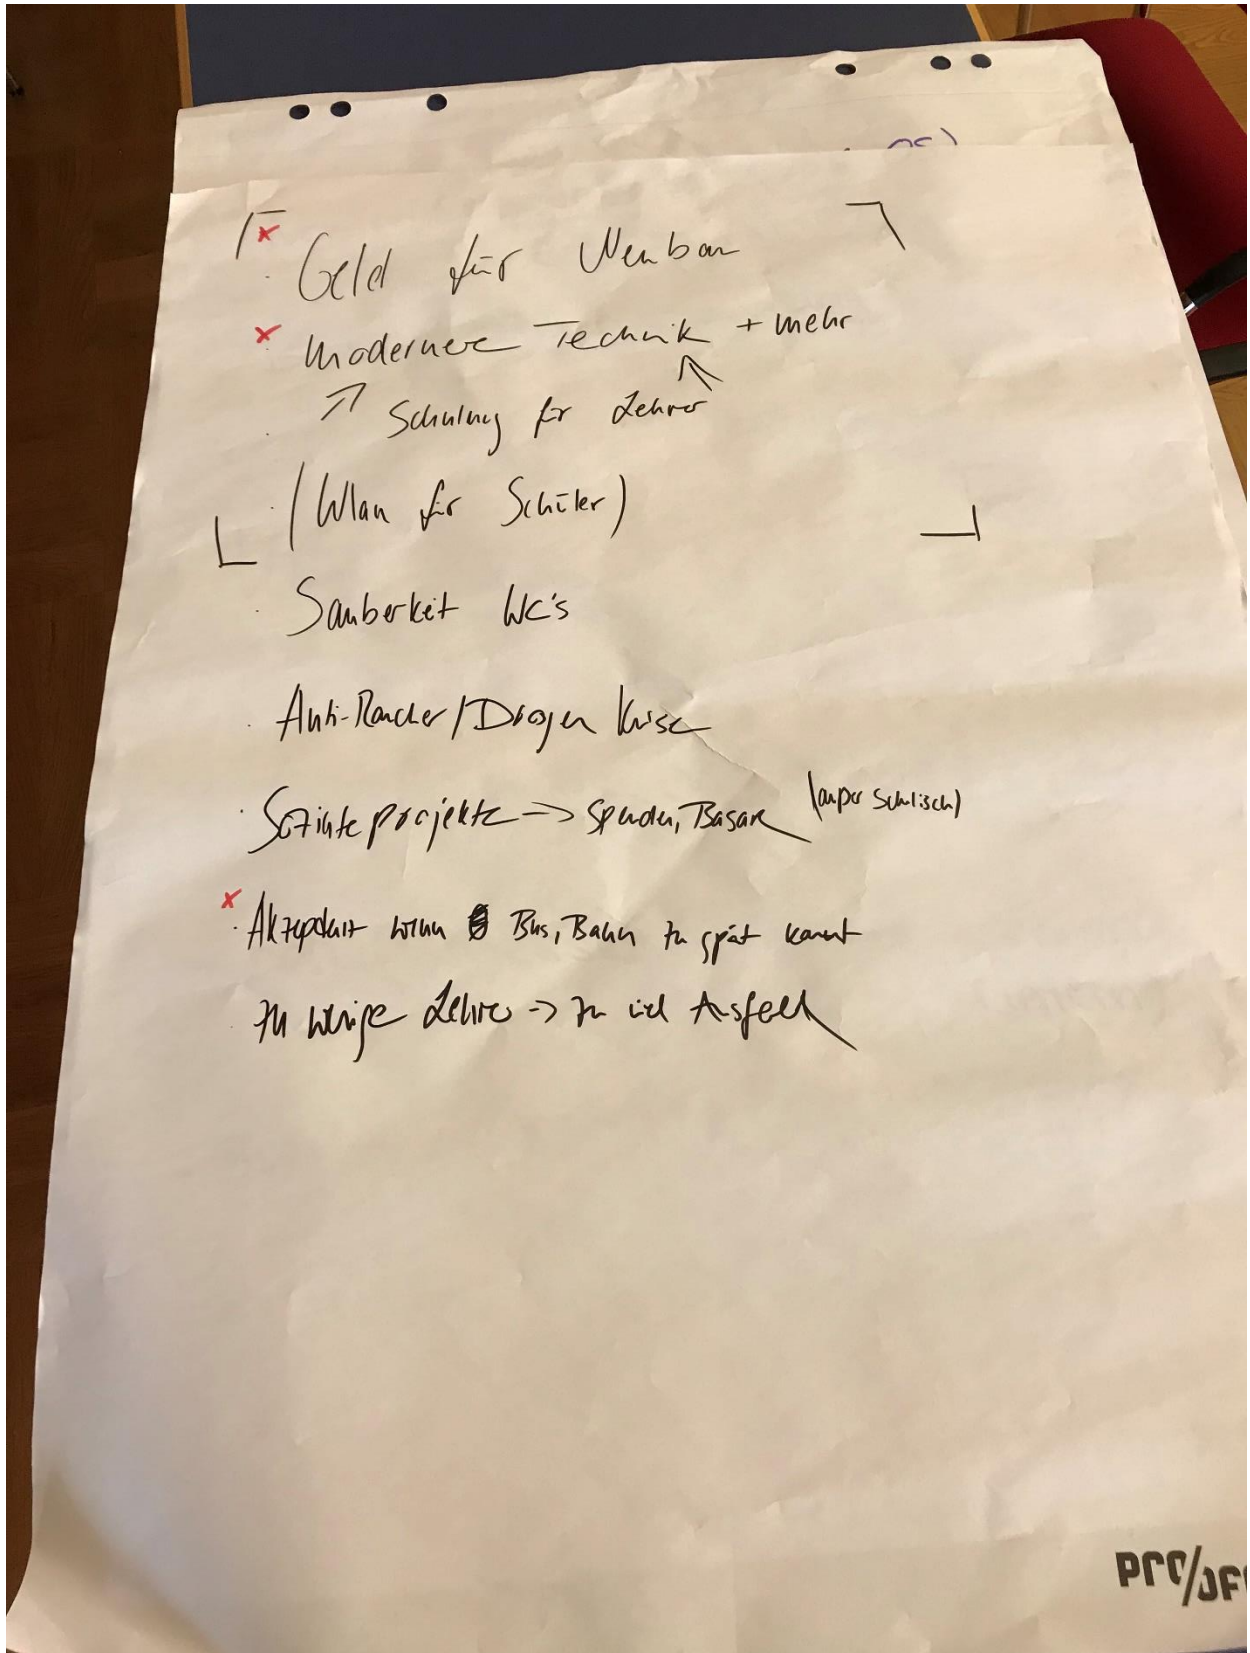 Geld für Neubau
modernere Technik + mehr
Schulung für Lehrer
(Wlan für Schüler)
Sauberkeit WC's
Anti-Raucher/Drogen Krise
Soziale projekte -> Spenden, Basare (außer schulisch)
Akzeptanz wenn Bus, Bahn zu spät kommt
zu wenige Lehrer -> zu viel Ausfall